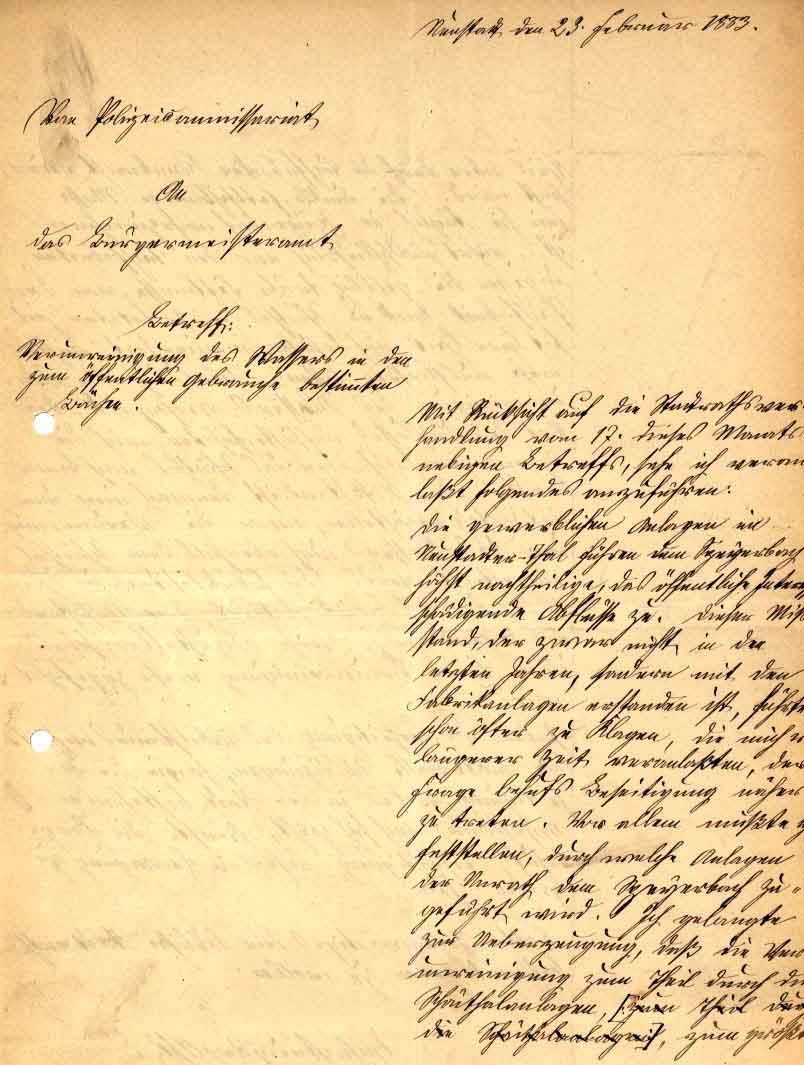 Neustadt, den 23. Februar 1883.
Das Polizeicommissariat
An
das Bürgermeisteramt
Betreff:
Verunreinigung des Wassers in den
zum öffentlichen Gebrauche bestimten
Bächen.
Mit Rücksicht auf die Stadtrathsver-
handlung vom 17. dieses Monats
nebigen Betreffs, sehe ich veran
laßt folgendes anzuführen:
Die gewerblichen Anlagen im
Neustadter-Thal führen dem Speyerbach
höchst nachtheilige, das öffentliche Inter
schädigende Abflüsse zu. Diesen Miß
stand, der zwar nicht in den
letzten Jahren, sondern mit den
Fabrikanlagen erstanden ist, führte
schon öfter zu Klagen, die mich
längerer Zeit veranlaßten, der
Frage behufs Beseitigung näher
zu treten. Vor allem mußte
feststellen, durch welche Anlagen
der Unrath dem Speyerbach zu-
geführt wird. Ich gelangte
zur Ueberzeugung, daß die Ver
unreinigung zum Theil durch di
Schönthalanlagen, [zum Theil dur
die Schönthalanlagen], zum größt